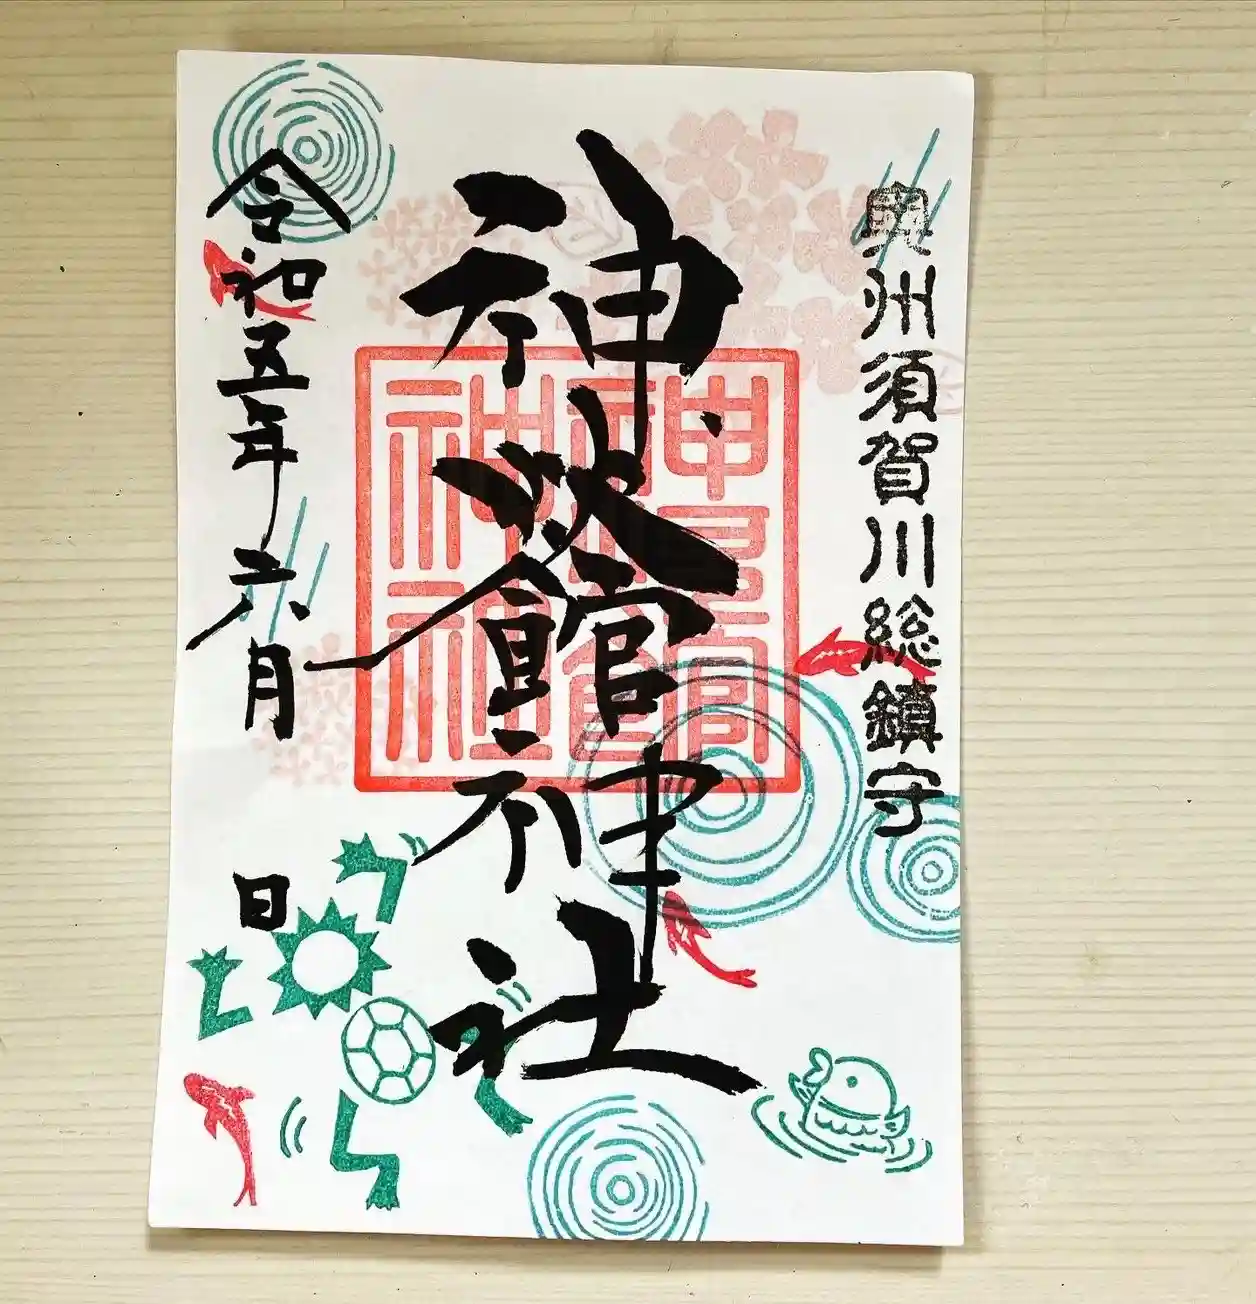 奥州須賀川総鎮守
神炊館神社
神炊館
神社
令和五年六月 日